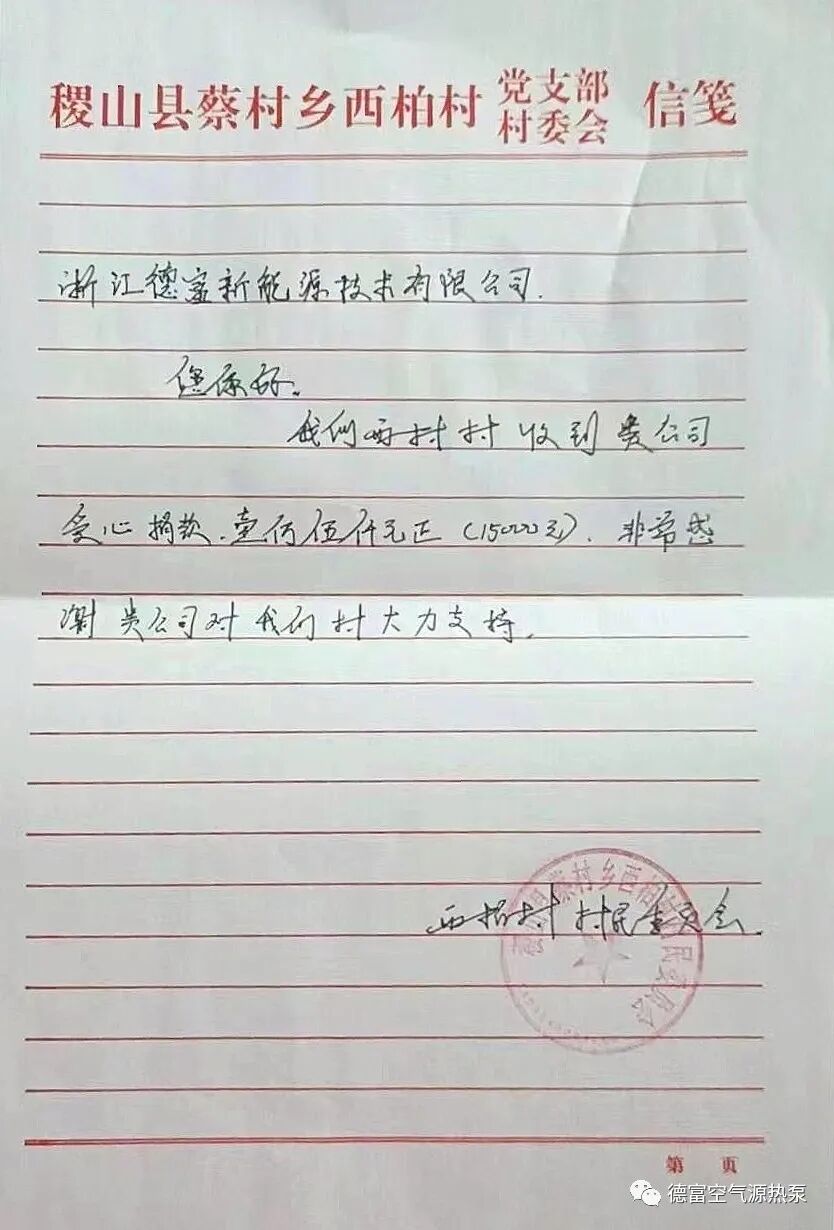 稷山县蔡村乡西柏村 党支部 村委会 信笺
浙江德富新能源技术有限公司.
您你好。
我们西村村 收到 贵公司
爱心捐款.壹仟伍仟元正(15000元).非常感
谢 贵公司对我们村大力支持.
西柏村 村民委员会
蔡村乡西柏村民委员会
第 页
德富空气源热泵